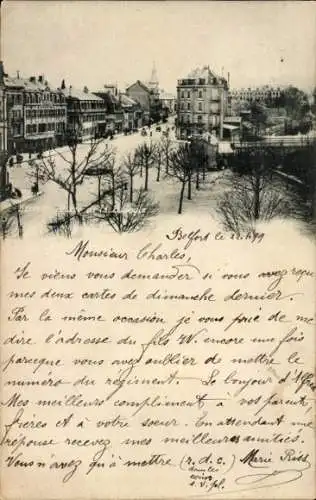 Belfort le 22.1.99
Monsieur Charles,
Je viens vous demander si vous avez reçu
mes deux cartes de dimanche dernier.
Par la même occasion je vous prie de me
dire l'adresse du fils W. encore une fois
parceque vous avez oublier de mettre le
numero du régiment. Le bonjour d'
Mes meilleurs compliment à vos parents,
frères et à votre soeur. En attendant une
reponse recevez mes meilleures amitiés.
Vous n'avez qu'à mettre (r. d. c. Marie
dans les